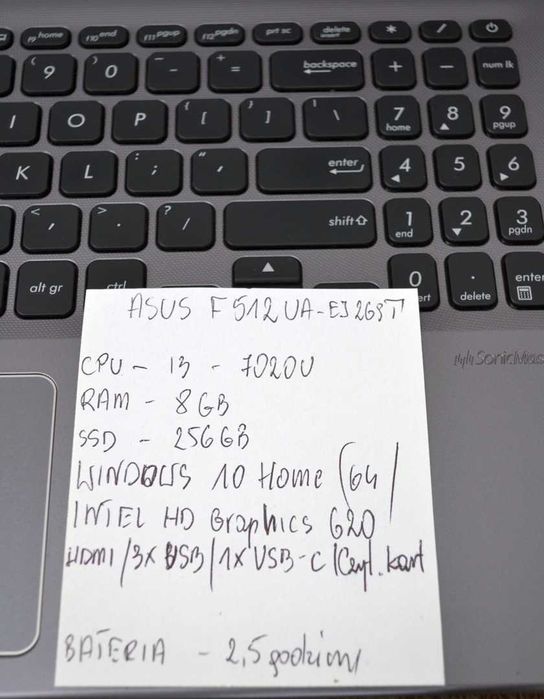 f9 home f10 end f11 pgup f12 pgdn prt sc delete insert * /
( 9 ) 0 _ - + = backspace + - num lk
I O P { [ } ] | \ 7 home 8 9 pgup
K L : ; " ' enter 4 5 6
< , > . ? / shift 1 end 2 3 pgdn
alt gr ctrl 0 . delete enter
SonicMas
ASUS F512UA-EJ263T
CPU - i3 - 7020U
RAM - 8GB
SSD - 256GB
WINDOWS 10 Home (64/
INTEL HD Graphics 620
HDMI/3x USB/1x USB-C/Czyt. kart
BATERIA - 2,5 godziny